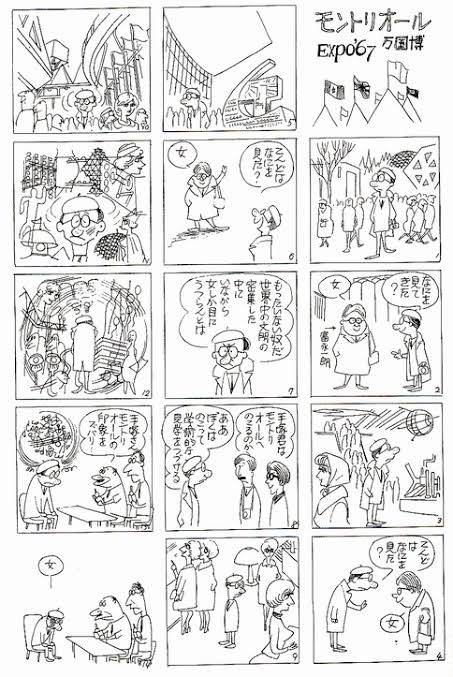 モントリオール
EXPO'67 万国博
1
なにを
見て
きた?
女
富永一朗
2
3
こんど
は
なにを
見た
?
女
4
5
こんどは
なにを
見た?
女
6
もったいない奴だ
世界中の文明の
密集した
中に
いながら
女しか目に
うつらんとは
7
手塚君は
モントリ
オールへ
のこるのか
ああ
ぼくは
のこって
学術的な
見学をつづける
8
9
10
11
12
手塚さん
モントリ
オールの
印象を
ズバリ
女